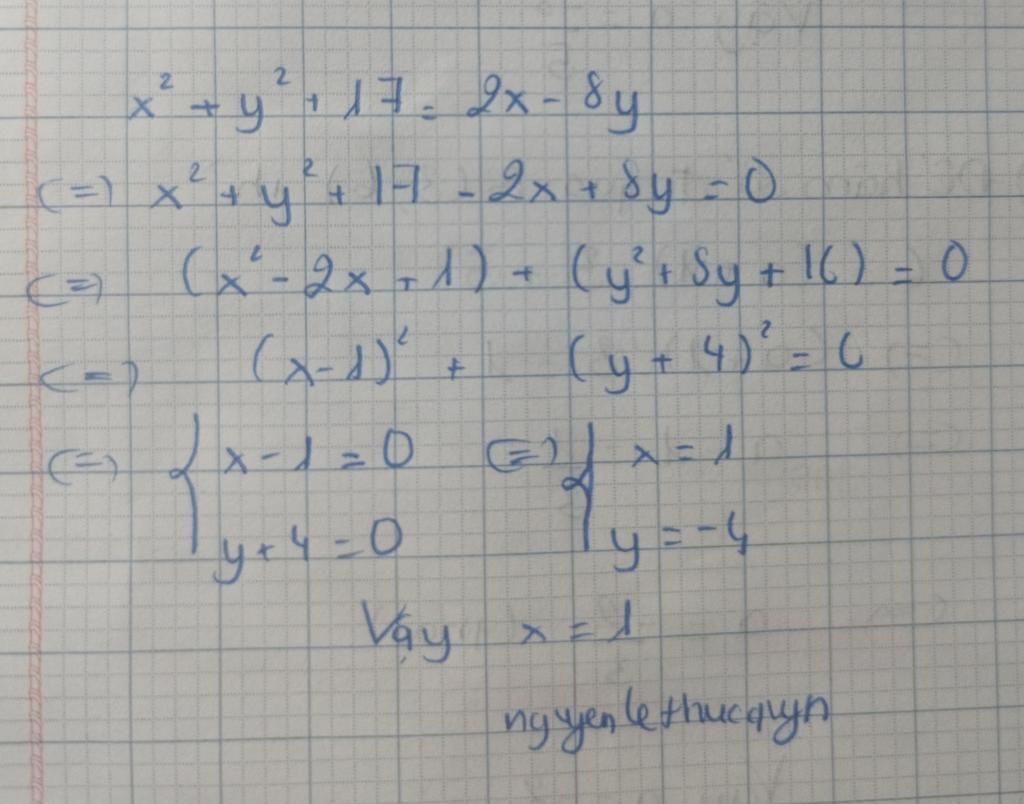 x² + y² + 17 = 2x - 8y
(=) x² + y² + 17 - 2x + 8y = 0
(=) (x² - 2x + 1) + (y² + 8y + 16) = 0
(=) (x-1)² + (y + 4)² = 0
(=) { x - 1 = 0 (=) { x = 1
y + 4 = 0 y = -4
Vậy x = 1
nguyenlethucquyn